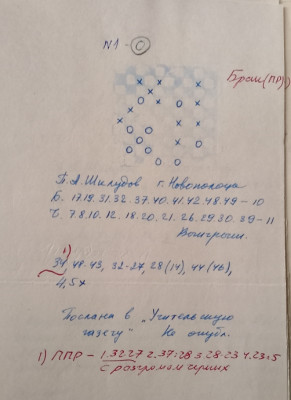 N1 - 0
Брак (ПР)
П.А. Шклудов г. Новополоцк
Б. 17.19.31.32.37.40.41.42.48.49 - 10
Ч. 7.8.10.12.18.20.21.26.29.30.39 - 11
Выигрыш.
1)
34, 48.43, 32-27, 28 (14), 44 (46),
4,5x
Послана в „Учительскую
газету" Не опубл.
1) ППР - 1.3227 2.37:28 3.28-23 4.23:5
с разгромом черных